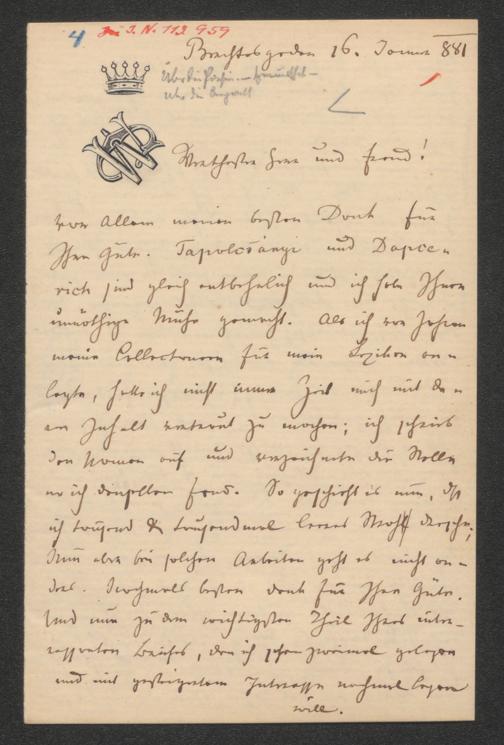 4 I.N. 113 959
Berchtesgaden 16. Januar 881
Über die
über die
Werthester Herr und Freund!
vor Allem meinen besten Dank für
Ihre Güte. Tapolcsányi und Dapče-
vich sind gleich entbehrlich und ich habe Ihnen
unnöthige Mühe gemacht. Als ich vor Jahren
meine Collectaneen für mein Lexikon an-
legte, hatte ich nicht immer Zeit mich mit d
em Inhalt vertraut zu machen; ich schrieb
den Namen auf und verzeichnete die Stelle
wo ich denselben fand. So geschieht es nun, daß
ich tausend & tausendmal leeres Stroh dresche;
Nun aber bei solchen Arbeiten geht es nicht an-
ders. Nochmals besten Dank für Ihre Güte.
Und nun zu dem wichtigsten Theil Ihres inte-
ressanten Briefes, den ich schon zweimal gelesen
und mit gesteigertem Interesse nochmal lesen
will.